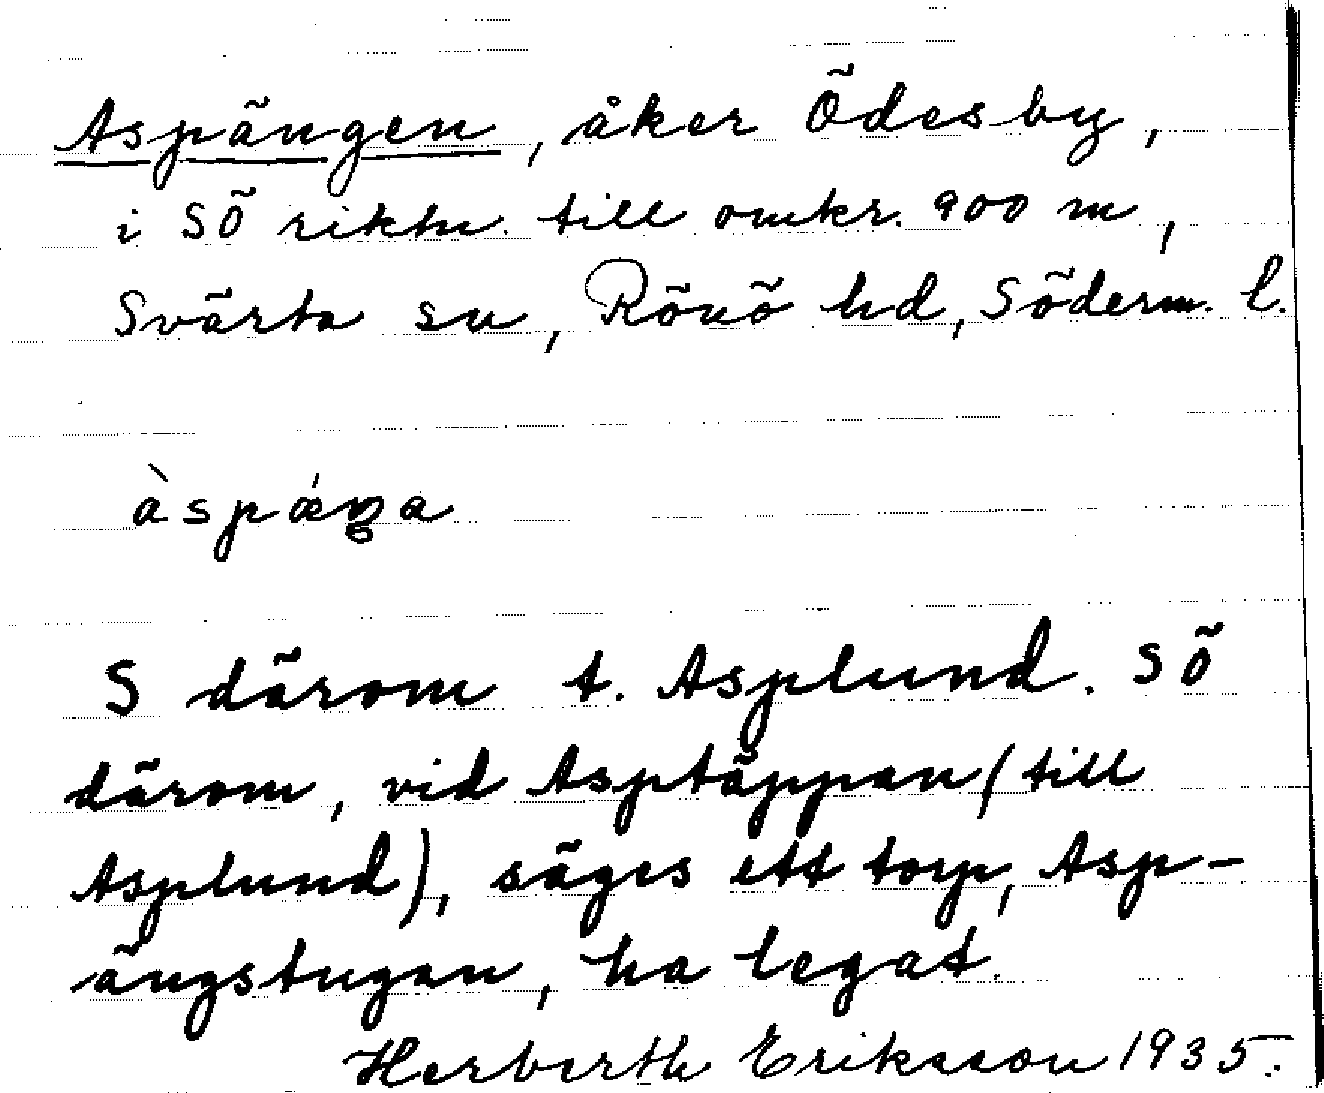 Aspängen, åker Ödesby,
i SÖ riktn. till omkr. 900 m,
Svärta sn, Rönö hd, Söderm. l.
àspǽŋa
S därom t. Asplund. SÖ
därom, vid Asptäppan (till
Asplund), säges ett torp, Asp-
ängstugan, ha legat.
Herberth Eriksson 1935.